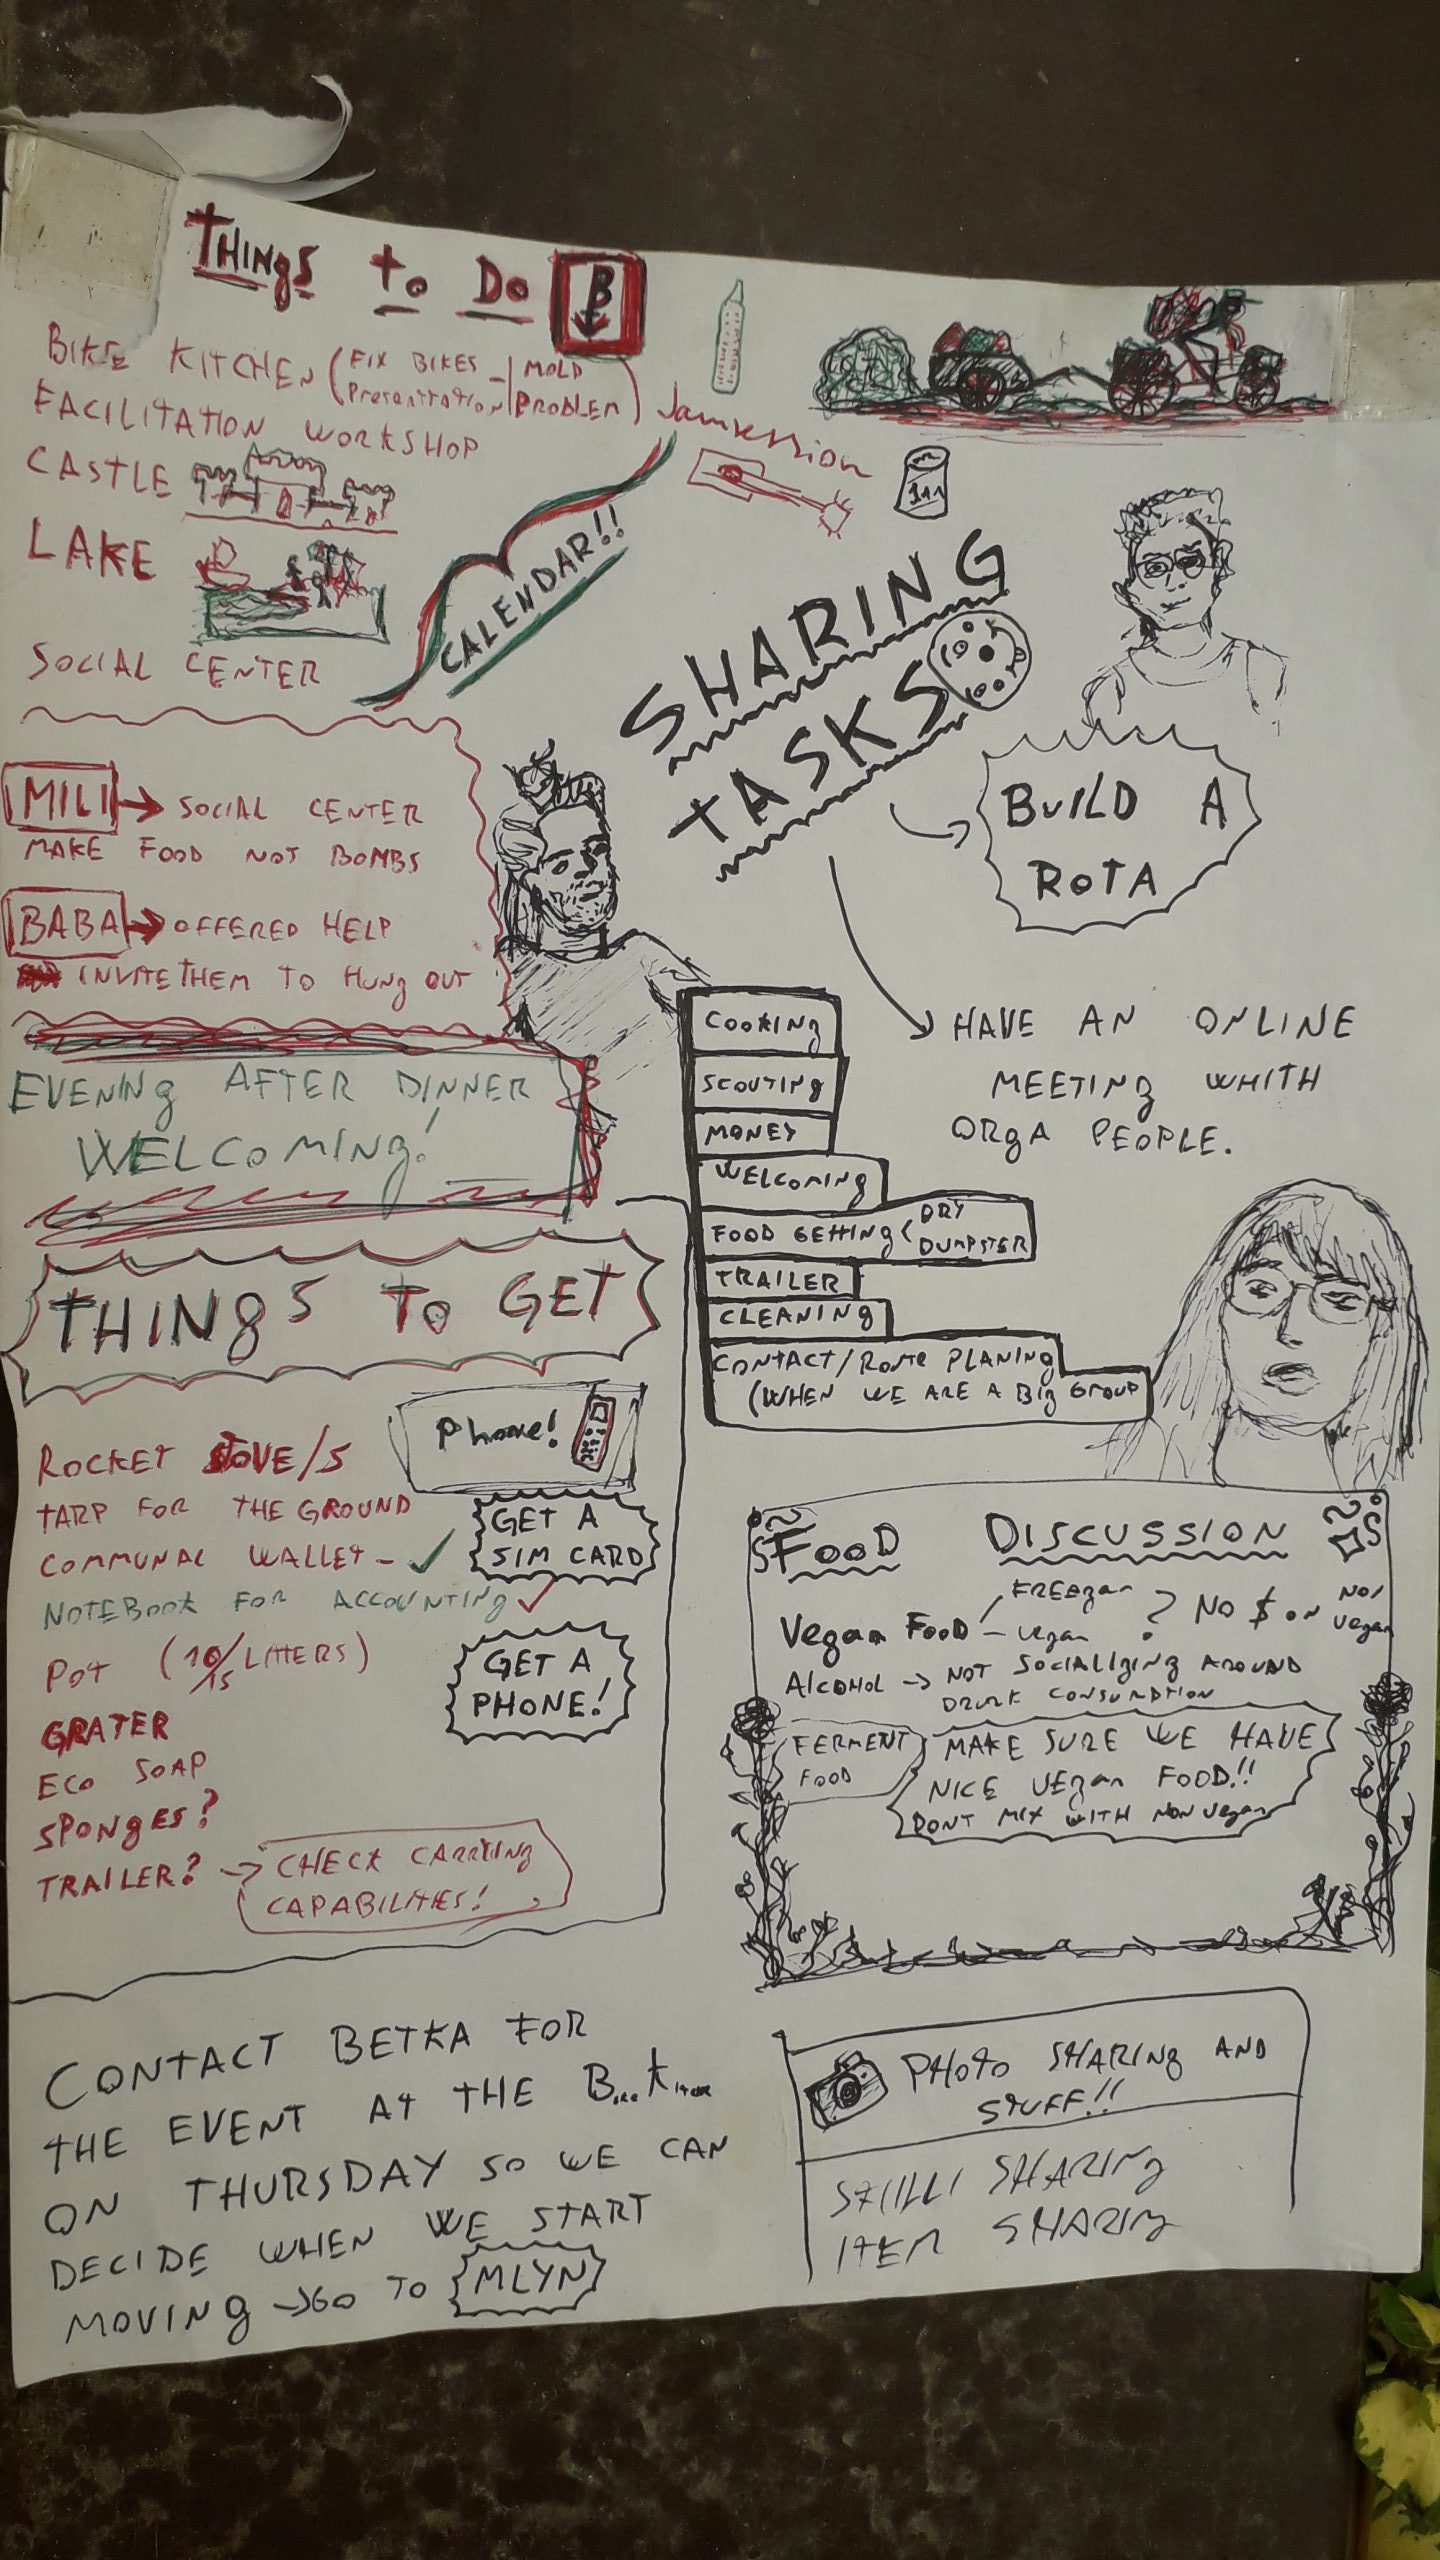 THINGS TO DO
B
BIKE KITCHEN (FIX BIKES - | MOLD
Presentation | PROBLEM)
FACILITATION WORKSHOP
Jamsession
CASTLE
LAKE
CALENDAR!!
SOCIAL CENTER
MILI → SOCIAL CENTER
MAKE FOOD NOT BOMBS
BABA → OFFERED HELP
INVITE THEM TO HUNG OUT
EVENING AFTER DINNER
WELCOMING!
SHARING
TASKS
BUILD A
ROTA
HAVE AN ONLINE
MEETING WHITH
ORGA PEOPLE.
COOKING
SCOUTING
MONEY
WELCOMING
FOOD GETTING < DRY
DUMPSTER
TRAILER
CLEANING
CONTACT/ROUTE PLANING
(WHEN WE ARE A BIG GROUP
THINGS TO GET
Phone!
ROCKET STOVE/S
TARP FOR THE GROUND
COMMUNAL WALLET - ✓
NOTEBOOK FOR ACCOUNTING ✓
POT (10/15 LITTERS)
GRATER
ECO SOAP
SPONGES?
TRAILER? → CHECK CARRYING
CAPABILITIES!
GET A
SIM CARD
GET A
PHONE!
FOOD DISCUSSION
Vegan FOOD / FREEgan
- vegan ? NO $ ON NON
vegan
AlCOHOL → NOT SOCIALIZING AROUND
DRUNK CONSUMPTION
FERMENT
FOOD
MAKE SURE WE HAVE
NICE VEgan FOOD!!
DONT MIX WITH NON vegan
CONTACT BETKA FOR
THE EVENT AT THE
ON THURSDAY SO WE CAN
DECIDE WHEN WE START
MOVING → GO TO MLYN
PHOTO SHARING AND
STUFF!!
SHARING
ITEM SHARING